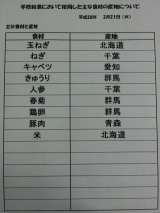 学校給食において使用した主な食材の産地について
平成28年 2月21日(火)
主な食材と産地
食材 産地
玉ねぎ 北海道
ねぎ 千葉
キャベツ 愛知
きゅうり 群馬
人参 千葉
春菊 群馬
鶏卵 群馬
豚肉 青森
米 北海道